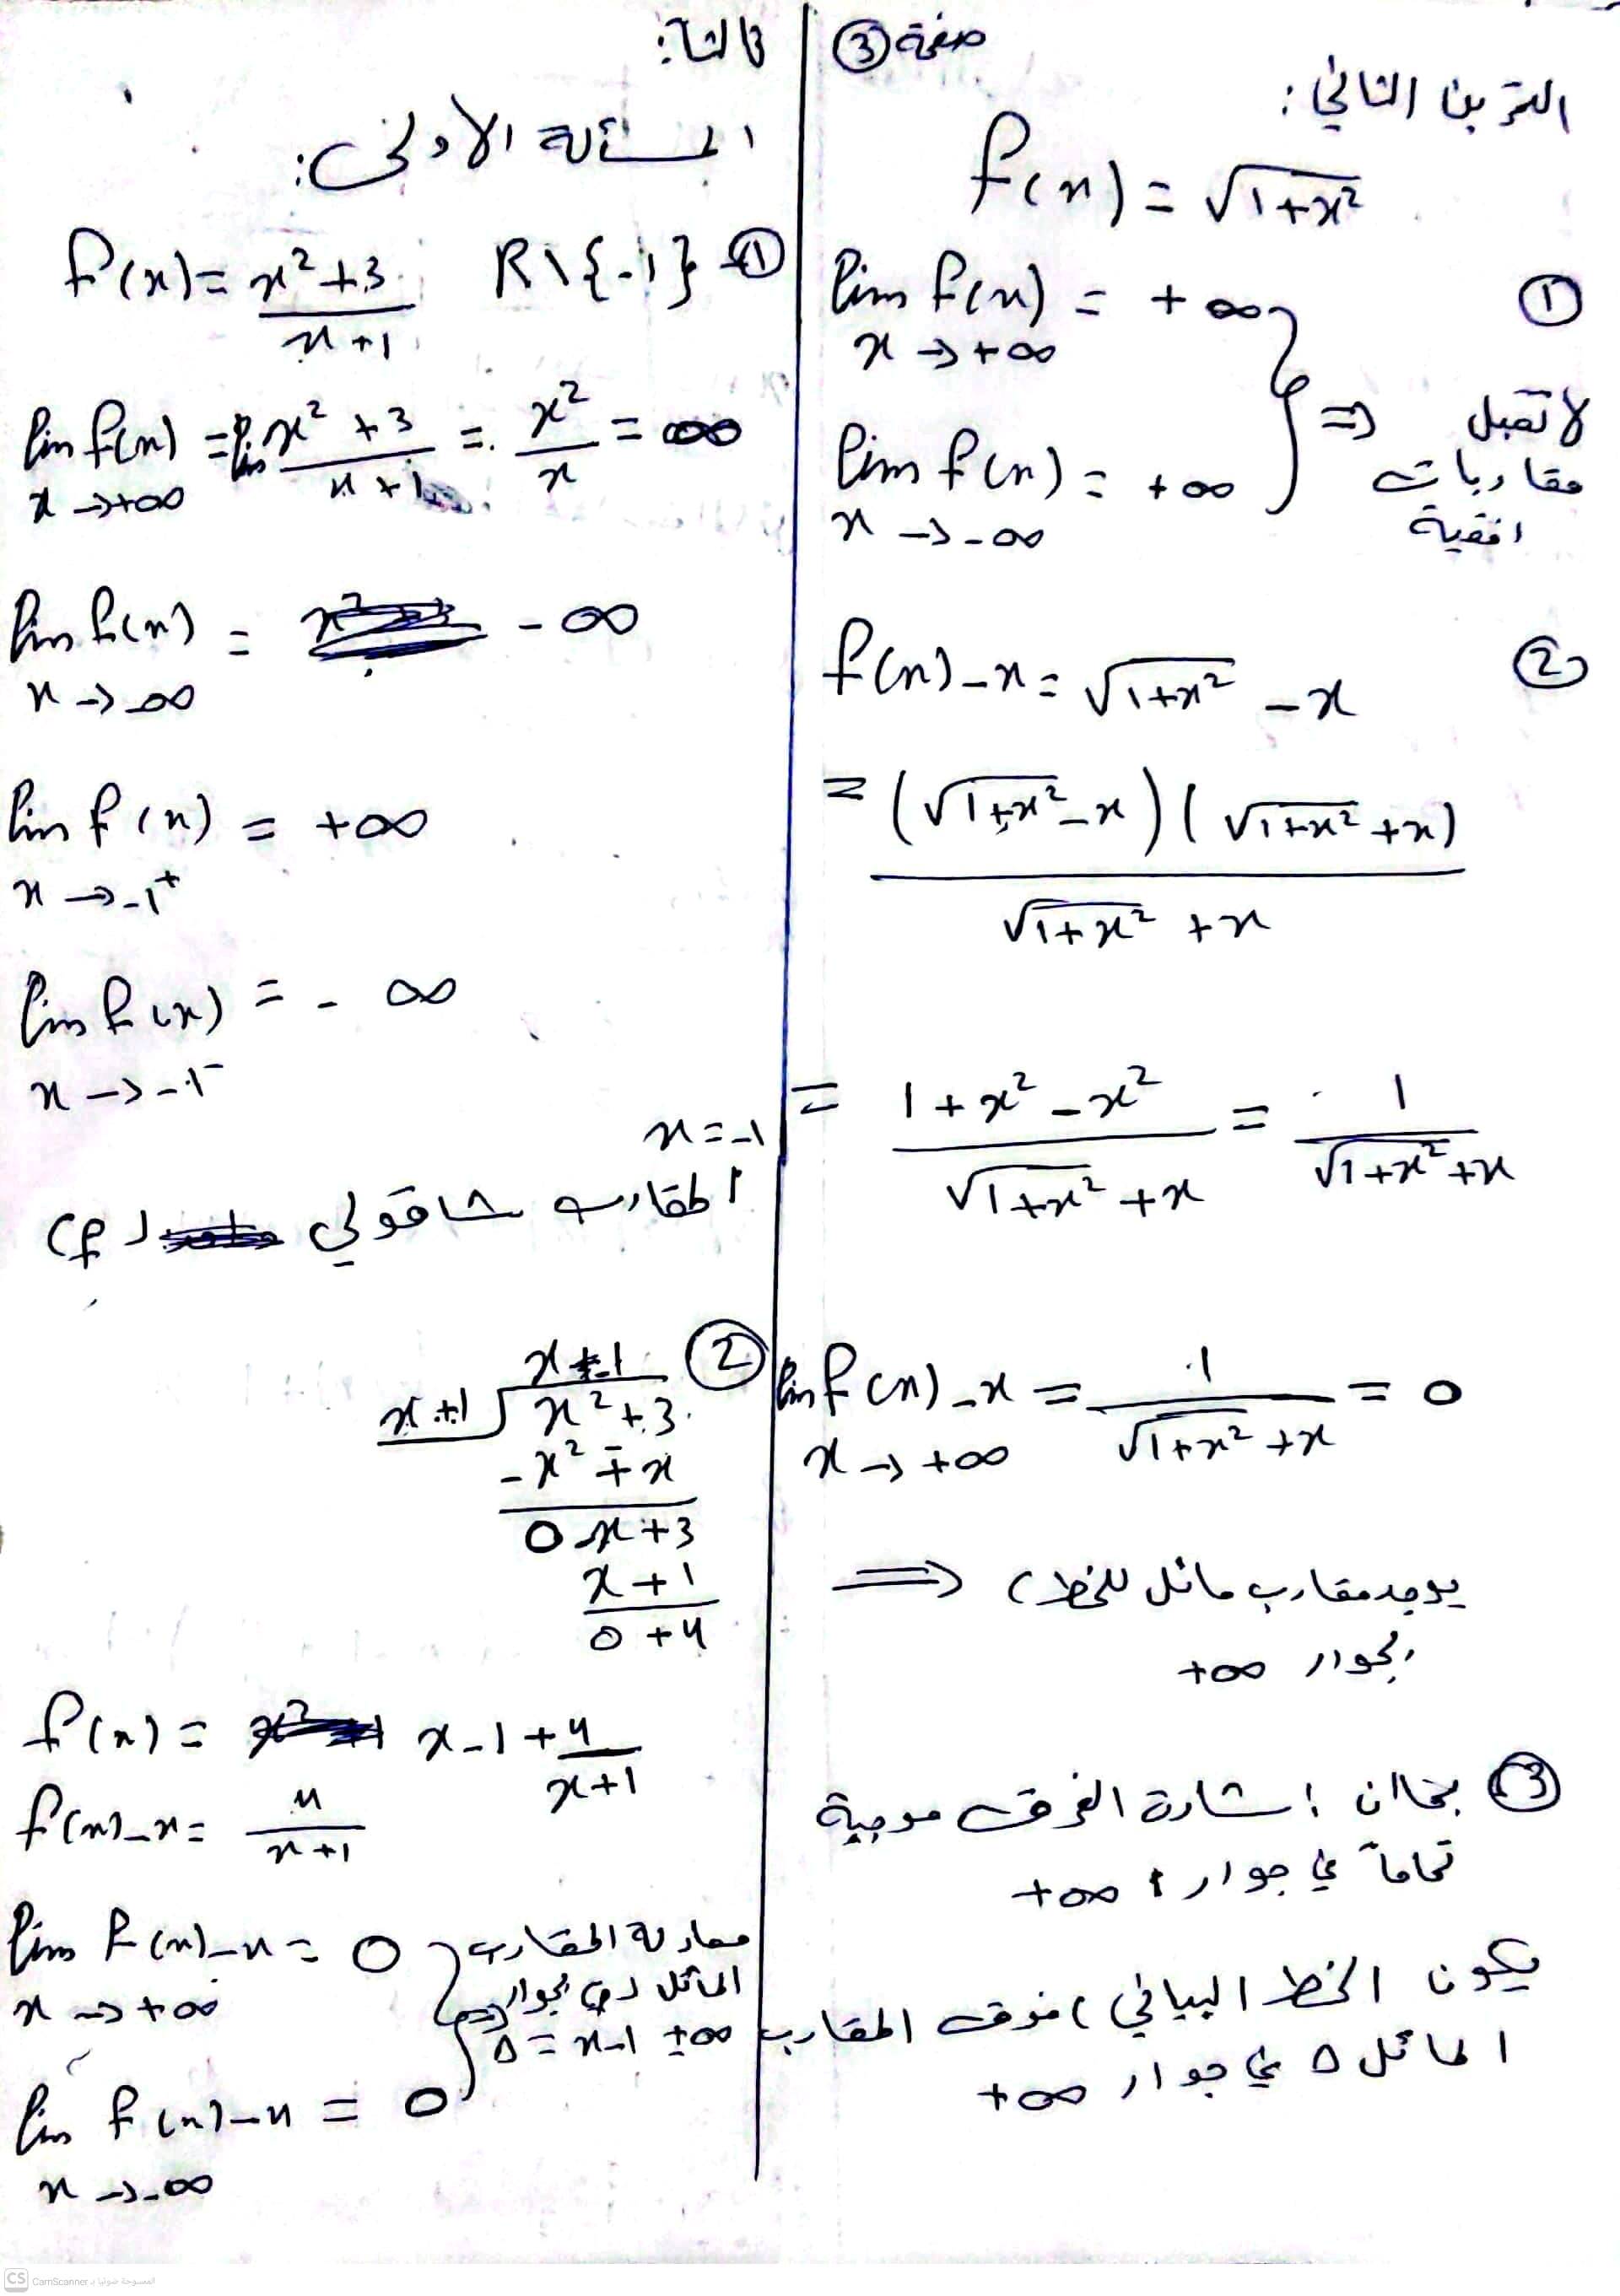 صفحة ③
التمرين الثاني:
f(x) = √1+x²
① lim f(x) = +∞
x → +∞
lim f(x) = +∞
x → -∞
⇒ لا تقبل
مقاربات
افقية
② f(x) - x = √1+x² - x
= (√1+x² - x)(√1+x² + x)
√1+x² + x
= 1+x²-x² / √1+x² + x = 1 / √1+x² + x
lim f(x) - x = 1 / √1+x² + x = 0
x → +∞
⇒ يوجد مقارب مائل للخط C
بجوار +∞
③ بما ان إشارة الفرق موجبة
تماماً في جوار +∞
يكون الخط البياني C فوق المقارب
المائل Δ في جوار +∞
ثالثاً:
المسألة الاولى:
① R\{-1} f(x) = x²+3 / x+1
lim f(x) = lim x²+3 / x+1 = x² / x = ∞
x → +∞
lim f(x) = -∞
x → -∞
lim f(x) = +∞
x → -1⁺
lim f(x) = -∞
x → -1⁻
x = -1
المقارب شاقولي لـ Cf
②
x - 1
x+1 √ x²+3
-x² ∓ x
0 -x+3
x+1
0 +4
f(x) = x-1 + 4 / x+1
f(x) - x = 4 / x+1
lim f(x) - x = 0
x → +∞
lim f(x) - x = 0
x → -∞
معادلة المقارب
المائل لـ Cf بجوار
Δ = x-1 ±∞
CS CamScanner الممسوحة ضوئيا بـ